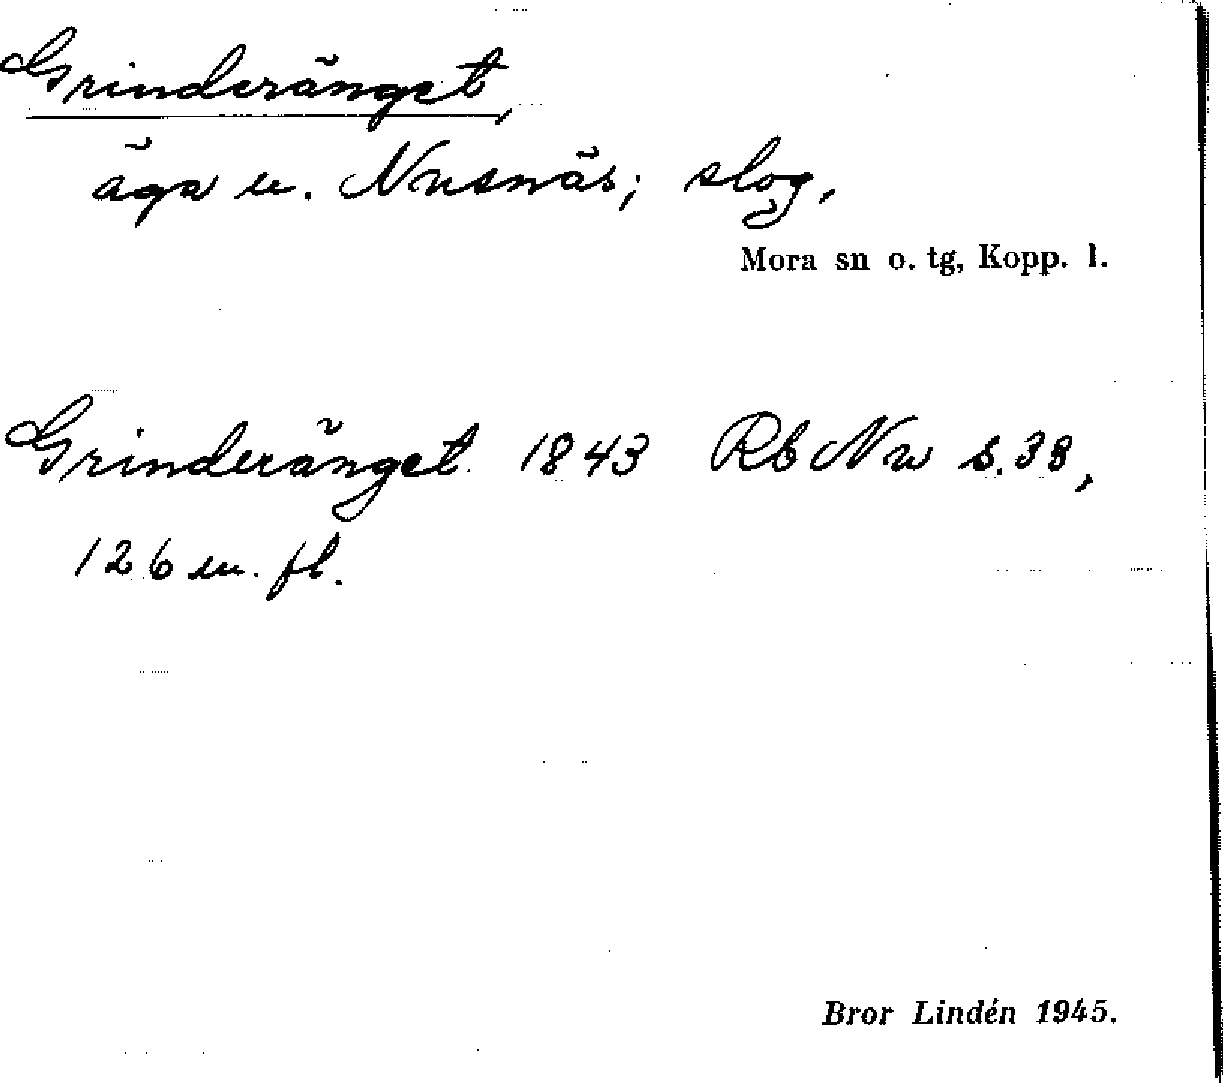 Grinderänget,
äga u. Nusnäs; slog,
Mora sn o. tg, Kopp. l.
Grinderänget 1843 Rb Nu s. 38,
126 m. fl.
Bror Lindén 1945.